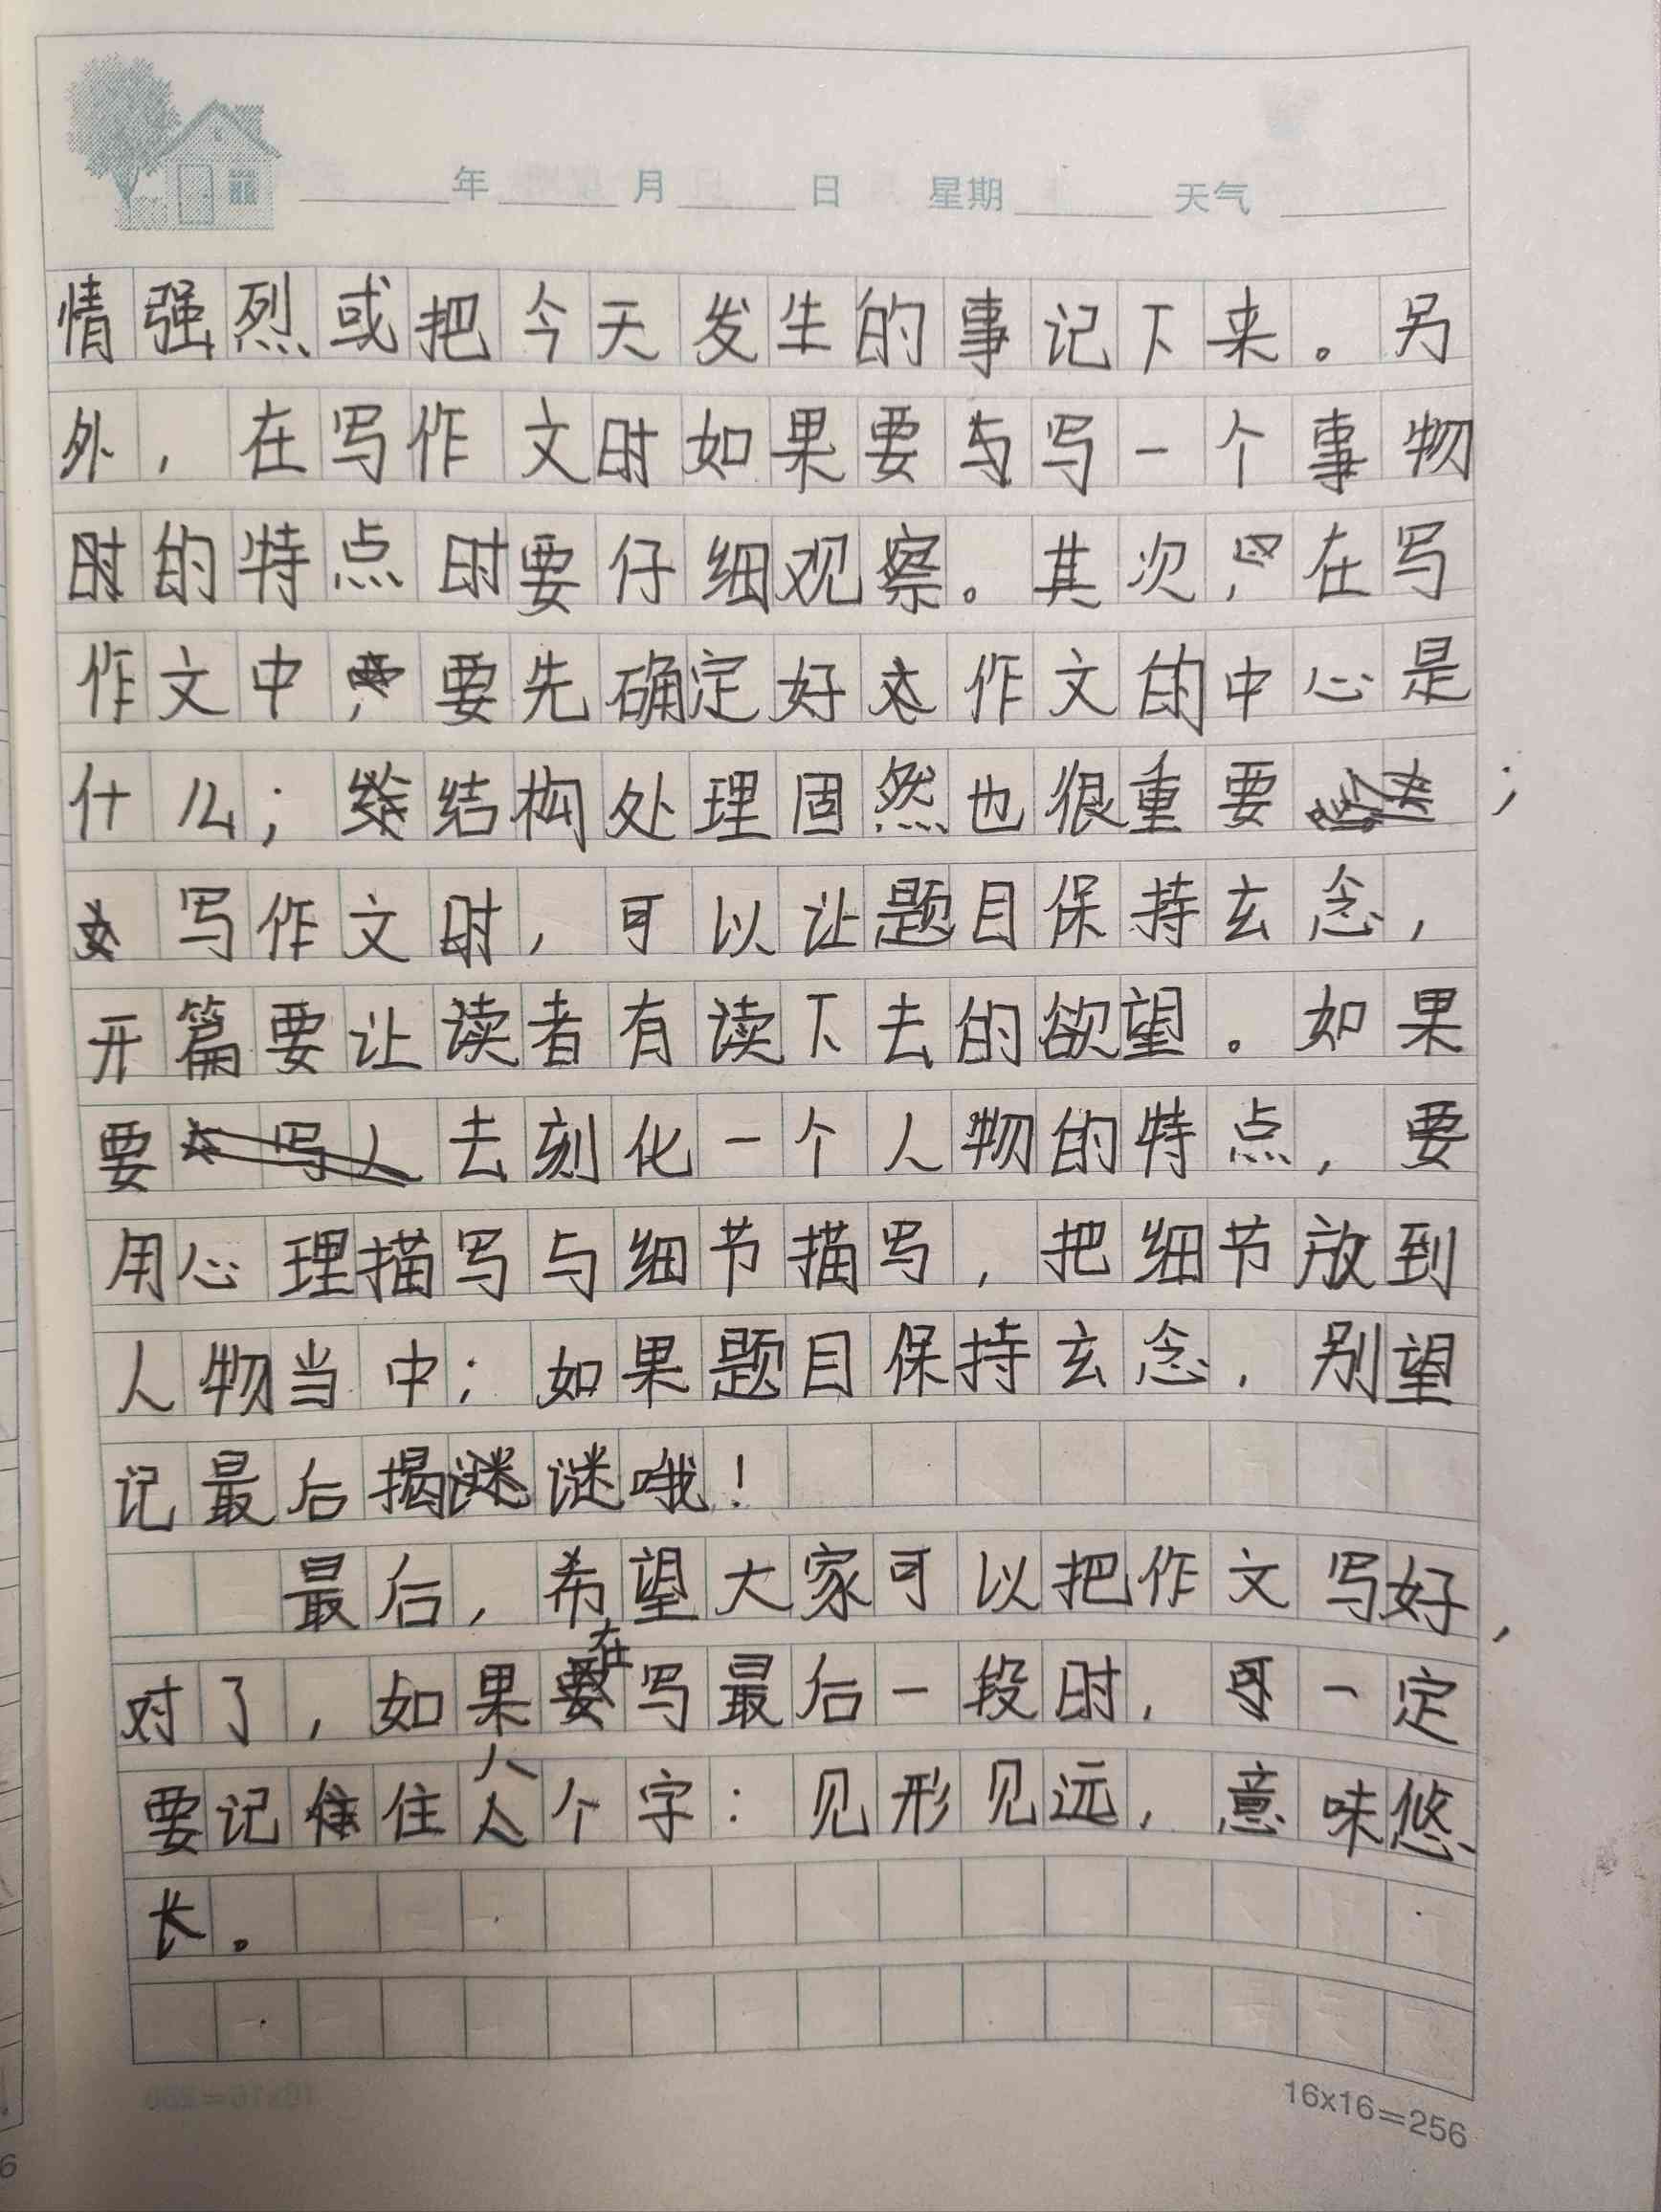 年 月 日 星期 天气
情强烈或把今天发生的事记下来。另
外，在写作文时如果要写一个事物
的特点时要仔细观察。其次，在写
作文中，要先确定好作文的中心是
什么；结构处理固然也很重要；
写作文时，可以让题目保持玄念，
开篇要让读者有读下去的欲望。如果
要去刻化一个人物的特点，要
用心理描写与细节描写，把细节放到
人物当中；如果题目保持玄念，别望
记最后揭谜哦！
最后，希望大家可以把作文写好，
对了，如果在写最后一段时，一定
要记住八个字：见形见远，意味悠
长。
16x16=256